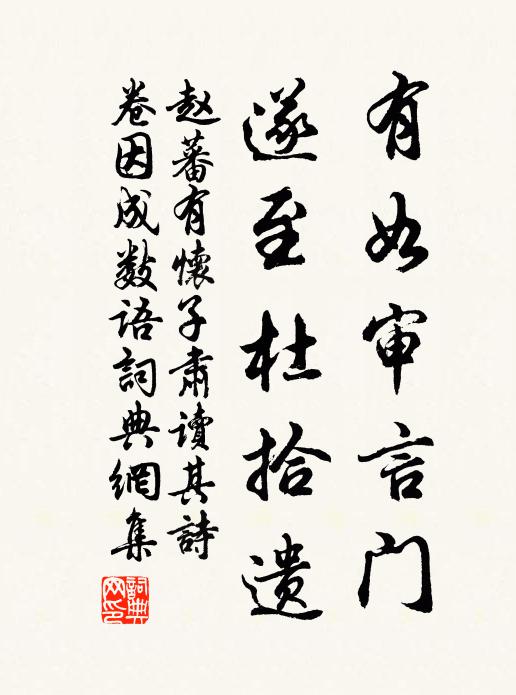 有如审言门
遂至杜拾遗
赵蕃有懷子肃讀其詩
卷因成数语詞典網集
詞典网印